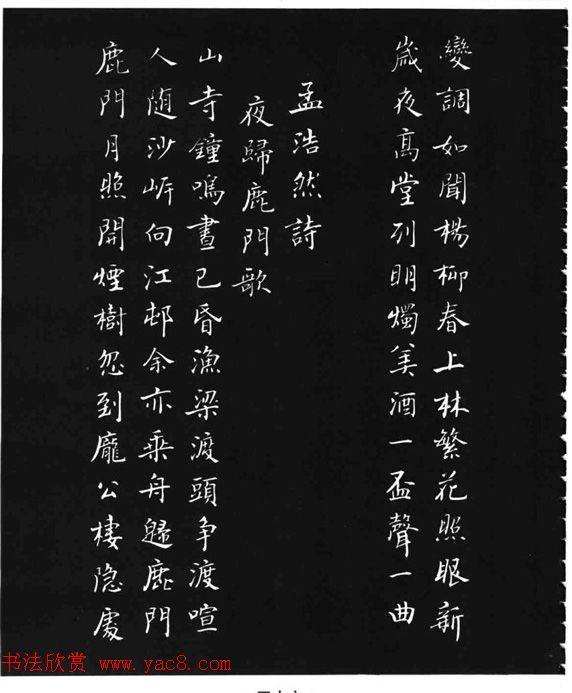 變調如聞楊柳春上林繁花照眼新
歲夜高堂列明燭美酒一盃聲一曲
孟浩然詩
夜歸鹿門歌
山寺鐘鳴晝已昏漁梁渡頭争渡喧
人随沙岍向江邨余亦乗舟歸鹿門
鹿門月照開煙樹忽到龐公棲隐處
书法欣赏 www.yac8.com